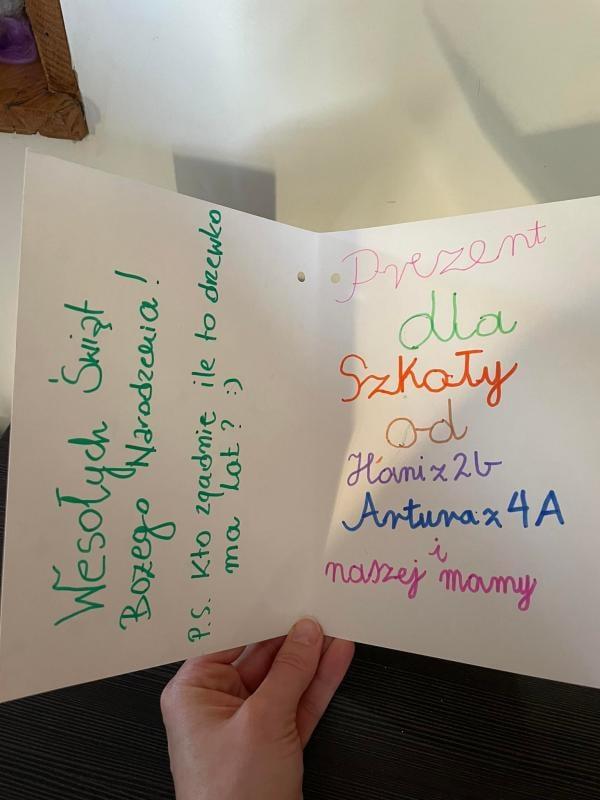 Wesołych Świąt
Bożego Narodzenia!
P.S. Kto zgadnie ile to drzewko
ma lat? :)
Prezent
dla
Szkoły
od
Hani z 2b
Artura z 4A
i
naszej mamy